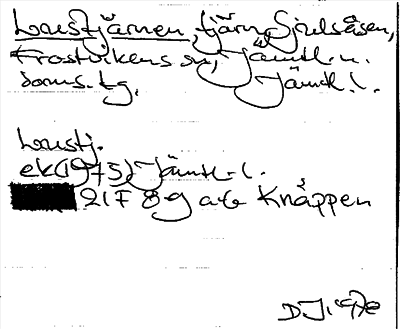 Lustjärnen, tjärn, Sjulsåsen,
Frostvikens sn, Jämtl. n.
doms. tg. Jämtl. l.
Lustj.
ek (1975) Jämtl. l.
21F 8g a-b Knäppen